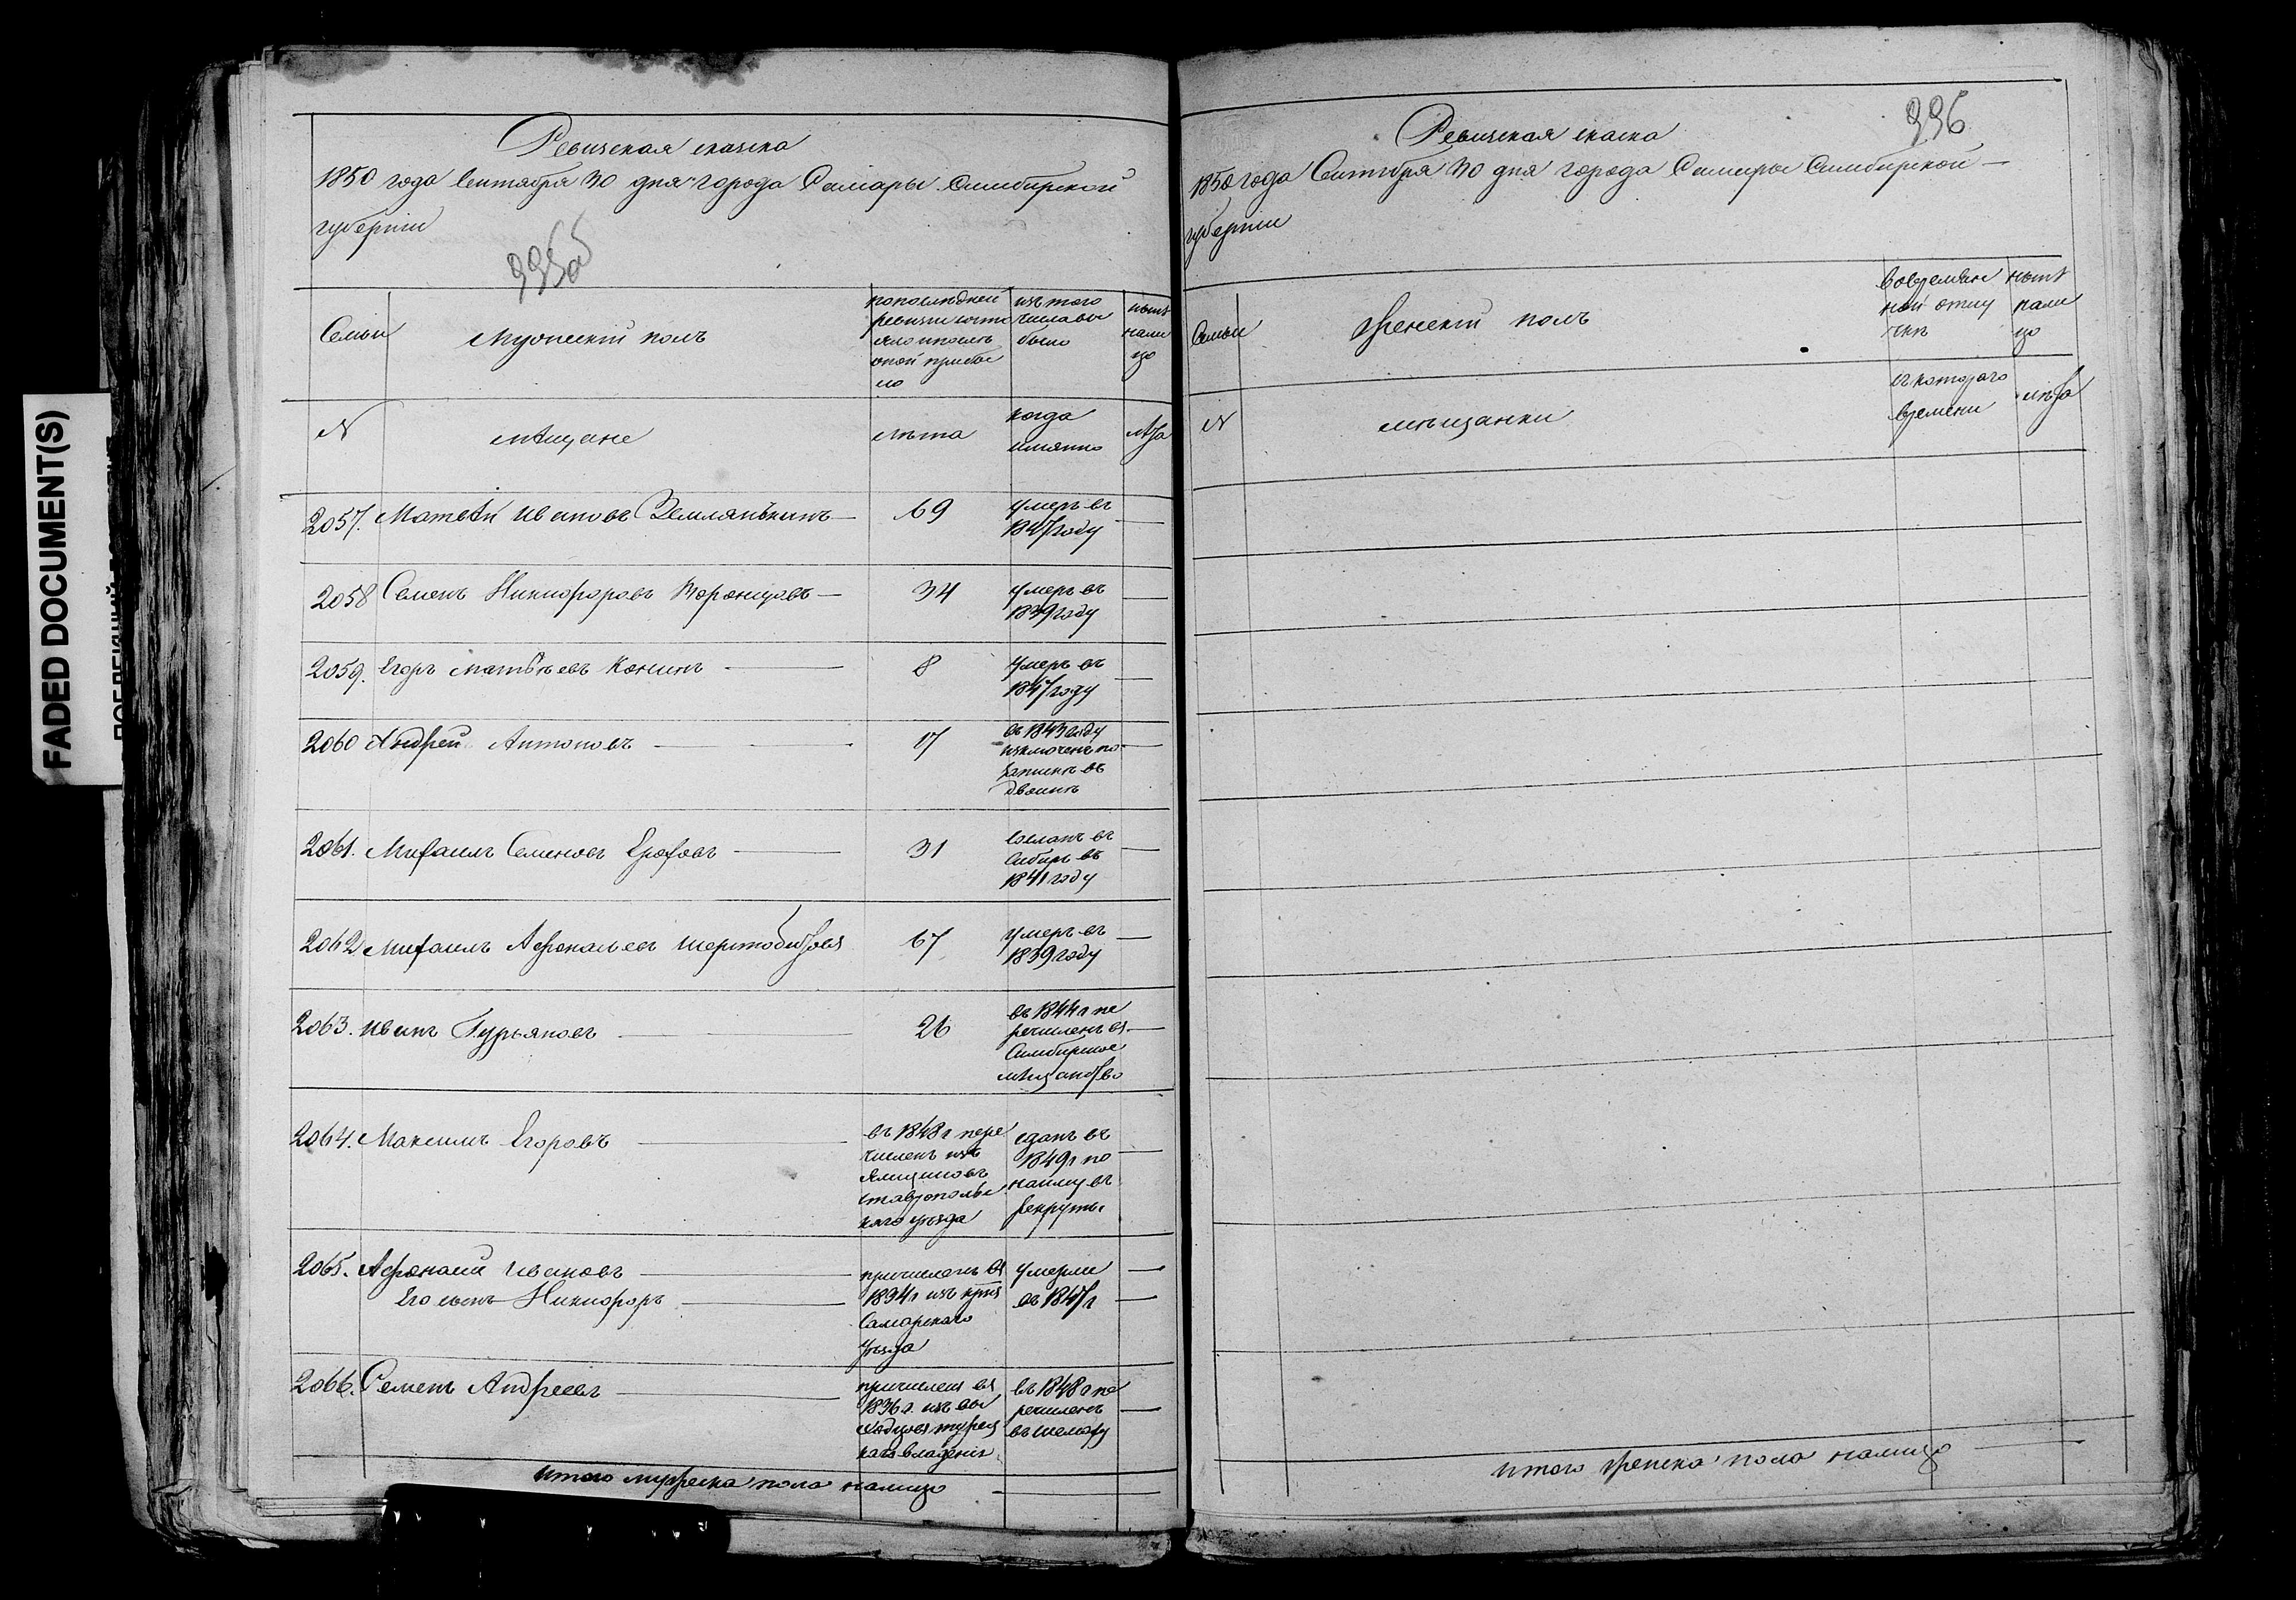 FADED DOCUMENT(S)
Ревизская сказка
1850 года Сентября 30 дня города Самары Симбирской
губернiи
Семьи
Мужескiй полъ
по последней
ревизiи состо
яло и после
оной прибы
ло
изъ того
числа вы
было
ныне
нали
цо
N
мѣщане
лѣта
когда
имянно
лѣта
2057. Матвѣй Ивановъ Землянкинъ — 69 умеръ въ
1847 году
2058 Семенъ Никифоровъ Воронцовъ — 34 умеръ въ
1839 году
2059. Егоръ Матвѣевъ Конинъ — 8 умеръ въ
1847 году
2060 Андрей Антоновъ — 17 въ 1843 году
изключенъ по
записке въ
двоинѣ
2061. Михаилъ Семеновъ Ерофовъ — 31 сосланъ въ
Сибирь въ
1841 году
2062. Михаилъ Афонасьевъ 67 умеръ въ
1839 году
2063. Иванъ Гурьяновъ — 26 въ 1844 г пе
речисленъ въ
Симбирское
мѣщанство
2064. Максимъ Егоровъ — въ 1848 г пере
численъ изъ
Ямщиковъ
ставропольс
каго уѣзда
сданъ въ
1849 г по
найму въ
рекруты
2065. Афонасiй Ивановъ — причисленъ въ умерли —
Его сынъ Никифоръ — 1834 г изъ въ 1847 г —
Самарскаго
уѣзда
2066. Семенъ Андреевъ — причисленъ въ
1836 г. изъ вы
ходцовъ турец
каго владенiя
въ 1848 г пе
речисленъ
въ Шемаху
Итого мужеска пола налицо —
336
Ревизская скаска
1850 года Сентября 30 дня города Самары Симбирской —
губернiи
Семьи
Женскiй полъ
во времянной отлу
чкѣ
ныне
нали
цо
N
мѣщанки
съ котораго
времени
лѣта
Итого женска пола налицо —